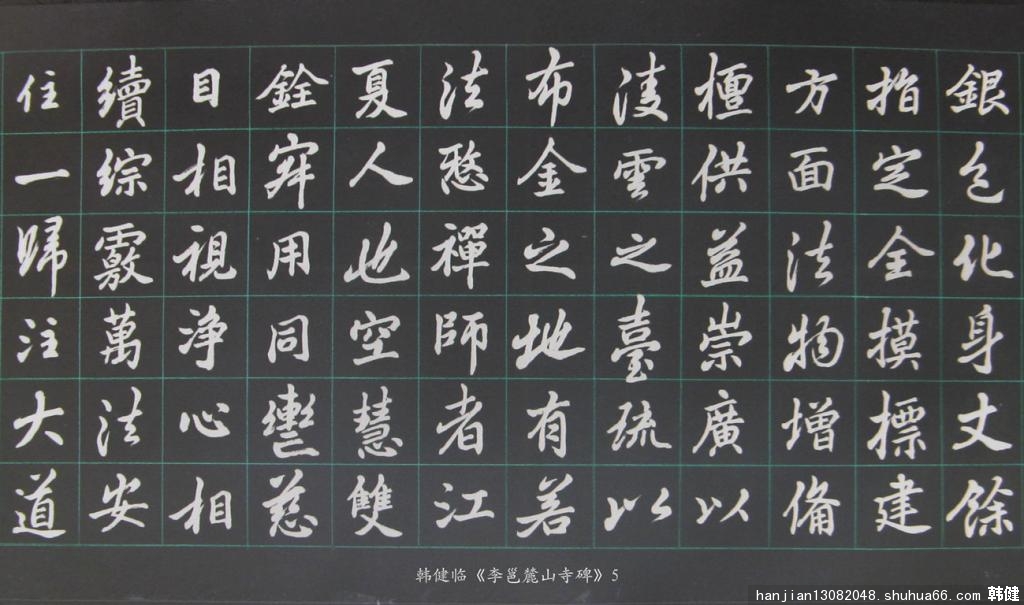 銀色化身丈餘
指定全摸標建
方面法物增備
檀供益崇廣以
淩雲之臺疏以
布金之地有若
法愍禪師者江
夏人也空慧雙
銓寂用同轡慈
目相視浄心相
續綜覈萬法安
住一歸注大道
韩健临《李邕麓山寺碑》5
hanjian13082048.shuhua66.com 韩健